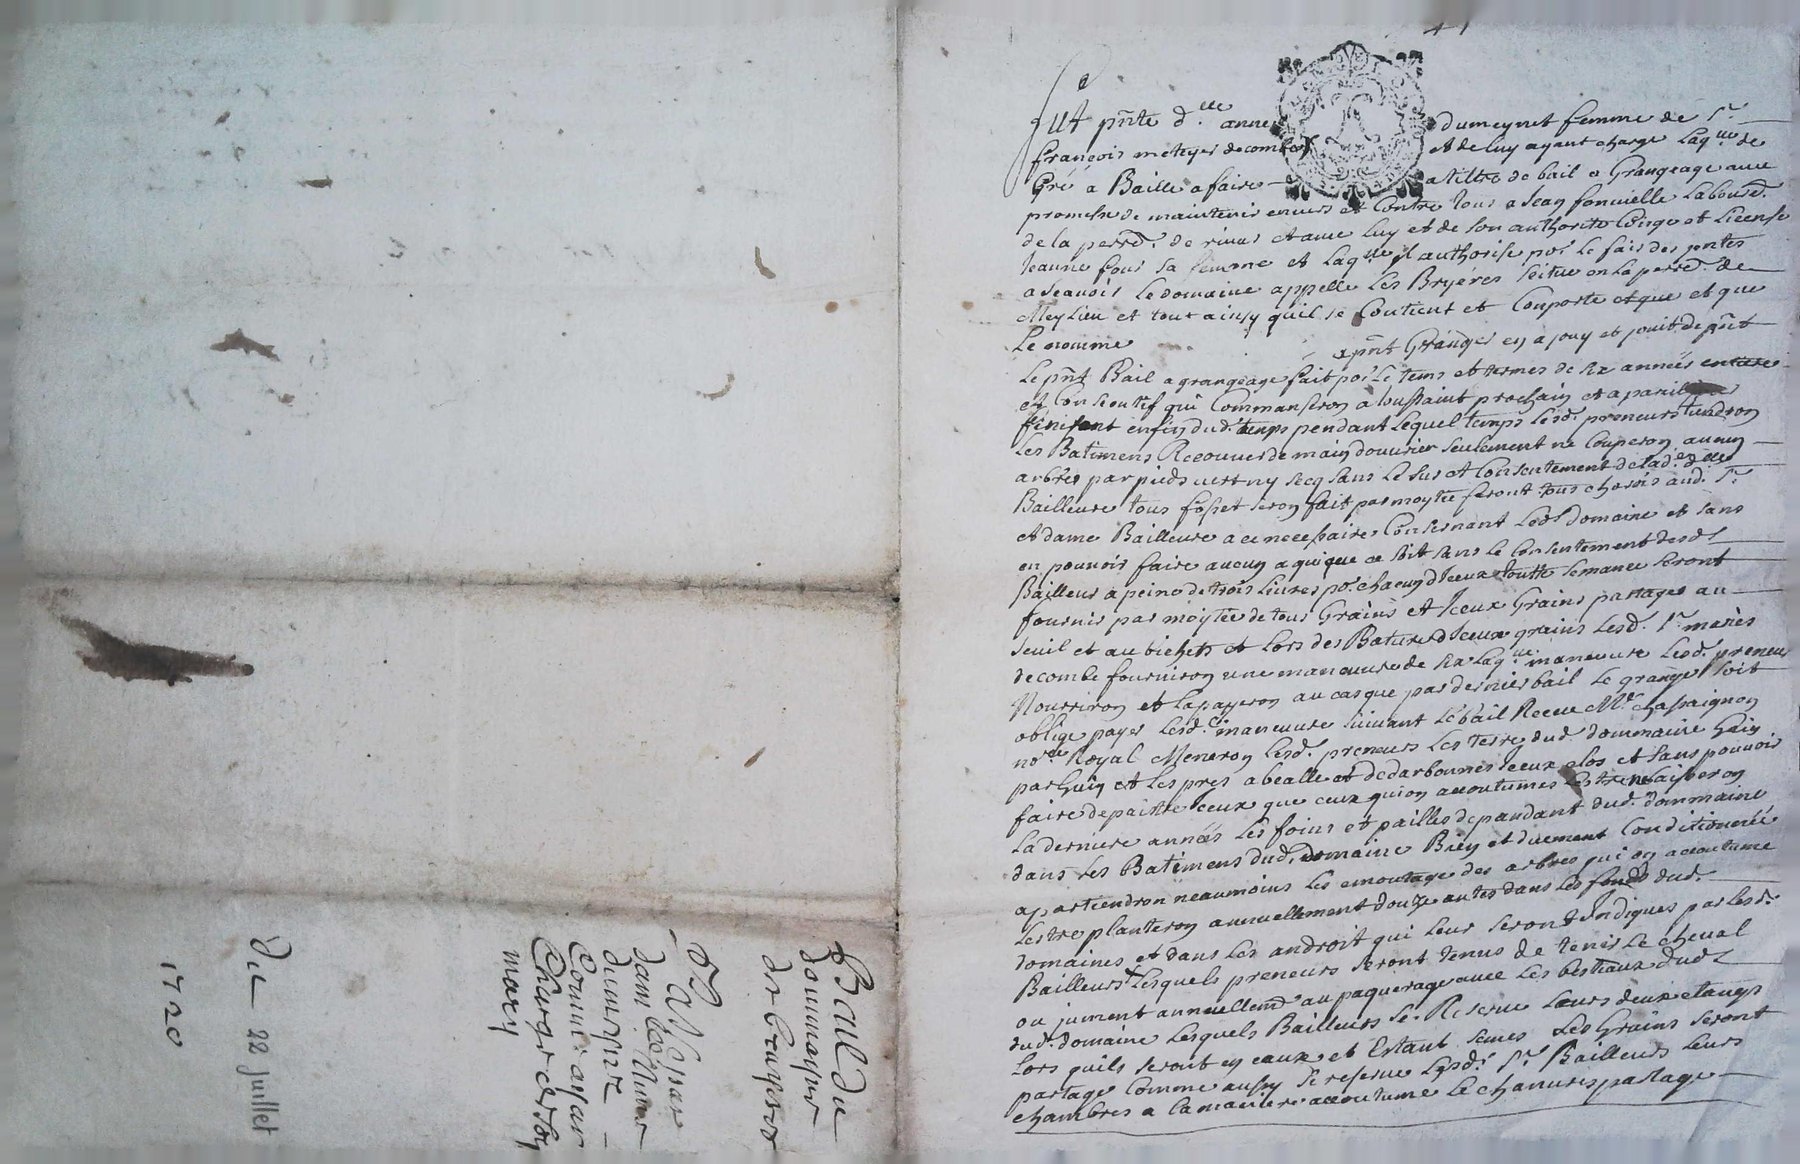 Bail du
dommayne
des bruyeres
dam Anne
dumeynet
Comme ayant
Charge de son
mary
Du 22 Juillet
1720
fut pñte d.lle anne dumeynet femme de Sr
françois metayer decombe et de luy ayant charge laq.lle de
Gré a Baillé a faire a tiltre de bail a Grangeage avec
promesse de maintenir envers et Contre tous a Jean fonvielle Laboure.
de la parr.e de rivas et avec luy et de son authorite Conge et License
Jeanne four sa femme et Laq.lle il authorise por le fais des pntes
a scavoir Le domaine appelle Les Bryéres Scitue en la parr.e de
Meylieu et tout ainsy qu'il se Contient et Comporte et que
Le nomme apñt Granger en a jouy et jouit de pñt
Le pñt Bail a grangeage fait por Le tems et termes de six années
et Consecutif qui Commanseron a toussaint prochain et a pareil
finisant enfin dud. temps pendant Lequel temps Lesd. preneurs tiendron
Les Batimens Recouver de main douvrier seulement ne Couperon aucun
arbres par pieds vert ny secq sans Le sus et Consentement de lad. d.lle
Bailleure tous fosset seron fait par moytie feront tous charois aud. Sr
et dame Bailleure a ce necessaires Consernant Led. domaine et sans
en pouvoir faire aucun a quique ce soit sans le Consentement desd.
Bailleur a peine de trois Livres po. chacun d'Iceux toutte semance seront
fournir par moytie de tous Grains et Iceux Grains partages au
seuil et au bichets et Lors des Batures d'Iceux grains Lesd. Sr maries
decombe fourniron une maneuvre de six laq.lle maneuvre Lesd. preneur
Nourriron et La payeron au cas que par dernier bail Le granger soit
oblige payer Lesd. maneuvre suivant Le bail Receu Mr. chassaignon
no.re Royal Meneron Lesd. preneurs Les terre dud. dommaine Guin
par Guin et Les pres a bealle et dedarbonner Iceux clos et sans pouvoir
faire depaitre Iceux que ceux qui on accoutumes Lestre Laisseron
La derniere années Les foins et pailles depandant dud. dommaine
dans Les Batimens dud. domaine Bien et duement Conditionnée
apartiendron neaumoins Les emontage des arbres qui on accoutume
Lestre planteron annuellement douze antes dans Les fonds dud.
domaines et dans Les androit qui Leur seront Indiques par Lesd.
Bailleurs Lesquels preneurs seront tenus de tenir Le cheval
ou jument annuellemt au paquerage avec Les bestiaux dud.
dud. domaine Lesquels Bailleurs se Reserve Leurs deux etangs
Lors quils seront en eaux et Estant semes Les Grains seront
partage Comme aussy se reserve Lesd. Sr Bailleurs Leurs
chambres a La maniere accoutume Le chanvres partage